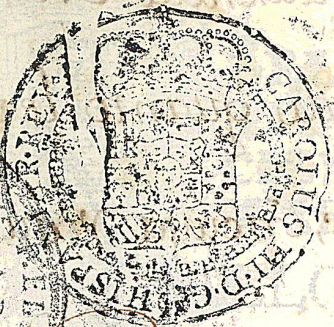 CAROLUS III·D·G·HISP
R·REX